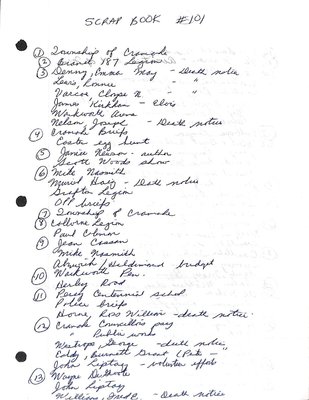 SCRAP BOOK #101
① Township of Cramahe
② Branch 187 Legion
③ Denny, Emma May - Death notice
Lewis, Ronnie " "
Vascoe, Clayse N. " "
James Kirkham - Elvis
Warkworth Arena
Nelson Joseph - Death notice
④ Cramahe Briefs
Easter egg hunt
⑤ Janice - author
Scotts Woods show
⑥ Mike Nasmith
Muriel - Death notice
Grafton Legion
OPP briefs
⑦ Township of Cramahe
⑧ Colborne Legion
Paul
⑨ Jean
Mike Naasmith
Alnwick / Haldimand budget
⑩ Warkworth Pen.
Harley Road
⑪ Percy Centennial school
Police briefs
Horne, Ross William - death notice.
⑫ Cramahe Councillors pay
" Public works
George - death notice
Eddy, Burnett Grant (Pete - "
John - volunteer efforts
⑬ Wayne
John
Williams, Fred C. - Death notice